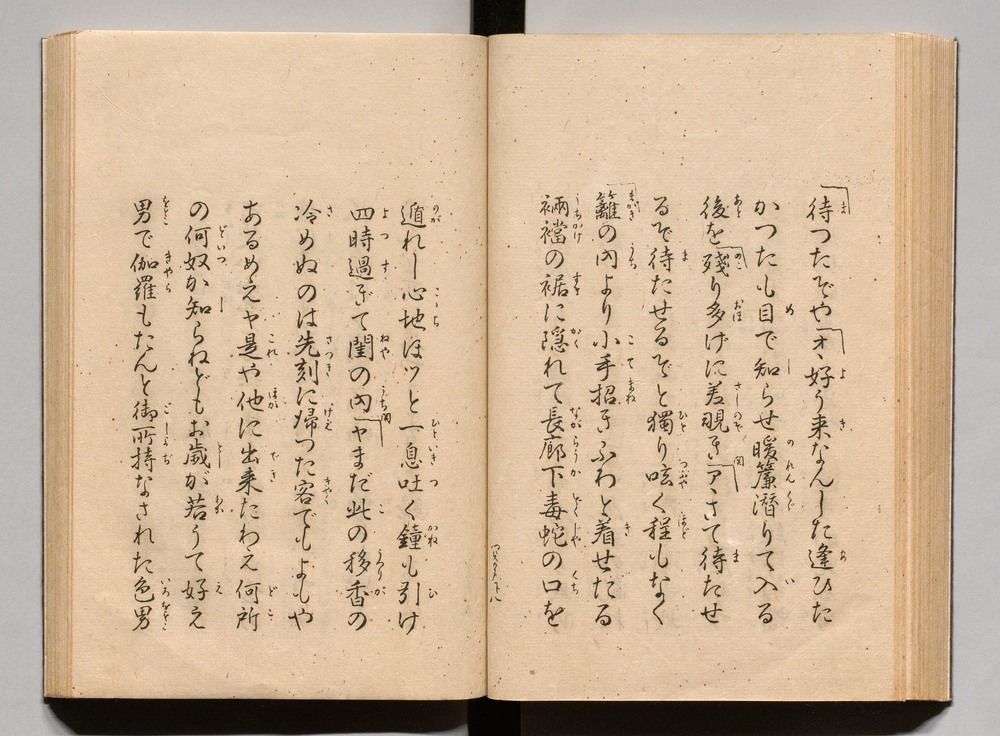 待つたぞや「オヽ好う来なんした逢ひた
かつたも目で知らせ暖簾潜りて入る
後を「残り多げに差覗き「アヽさて待たせ
るぞ待たせるぞと獨り呟く程もなく
「籬の内より小手招きふわと着せたる
裲襠の裾に隠れて長廊下毒蛇の口を
遁れし心地ほツと一息吐く鐘も引け
四時過ぎて閨の内「ヤまだ此の移香の
冷めぬのは先刻に帰つた客でもよもや
あるめえヤ是や他に出来たわえ何所
の何奴か知らねどもお歳が若うて好え
男で伽羅もたんと御所持なされた色男